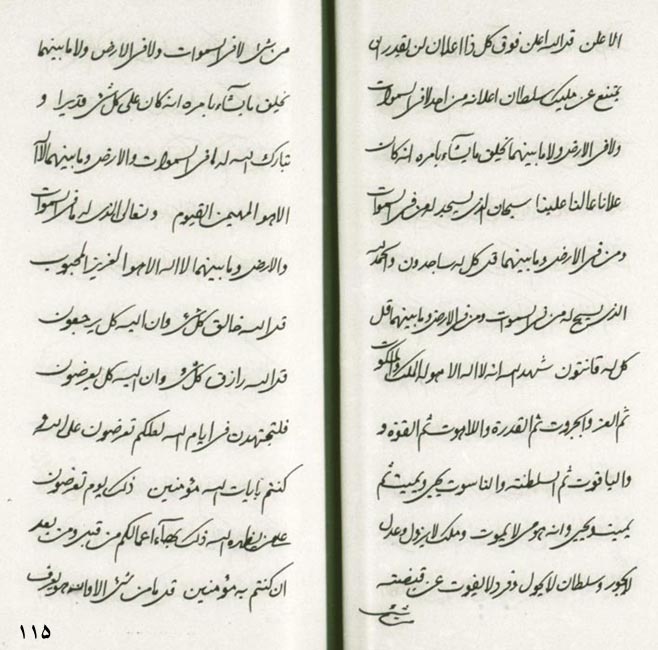 الاعلن قد الله اعلن فوق كل ذا اعلان لن يقدر ان
يمتنع عن مليك سلطان اعلانه من احد لا فى السموات
ولا فى الارض ولا ما بينهما يخلق ما يشاء بامره انه كان
علانا عالنا علينا سبحان الذى يسجد له من فى السموات
ومن فى الارض وما بينهما قل كل له ساجدون والحمد لله
الذى يسبح له من فى السموات ومن فى الارض وما بينهما قل
كل له قانتون شهد الله انه لا اله الا هو له الملك والملكوت
ثم العز والجبروت ثم القدرة واللاهوت ثم القوة و
والياقوت ثم السلطنة والناسوت يحيى ويميت ثم
يميت ويحيى وانه هو حى لا يموت وملك لا يزول وعدل
لا يجور وسلطان لا يحول وفرد لا يفوت عن قبضته
من شئ
من شئ لا فى السموات ولا فى الارض ولا ما بينهما
يخلق ما يشاء بامره انه كان على كل شئ قديرا و
تبارك الله له ما فى السموات والارض وما بينهما لا اله
الا هو المهيمن القيوم وتعالى الذى له ما فى السموات
والارض وما بينهما لا اله الا هو العزيز المحبوب
قل الله خالق كل شئ وان اليه كل يرجعون
قل الله رازق كل شئ وان اليه كل يعرضون
فلتجتهدن فى ايام الله لعلكم تعرضون على الله و
كنتم بايات الله مؤمنين ذلك يوم تعرضون
على من يظهره الله ذلك بهاء اعمالكم من قبل ومن بعد
ان كنتم به مؤمنين قل ما من شئ الا وانه هو يعرف
۱۱۵